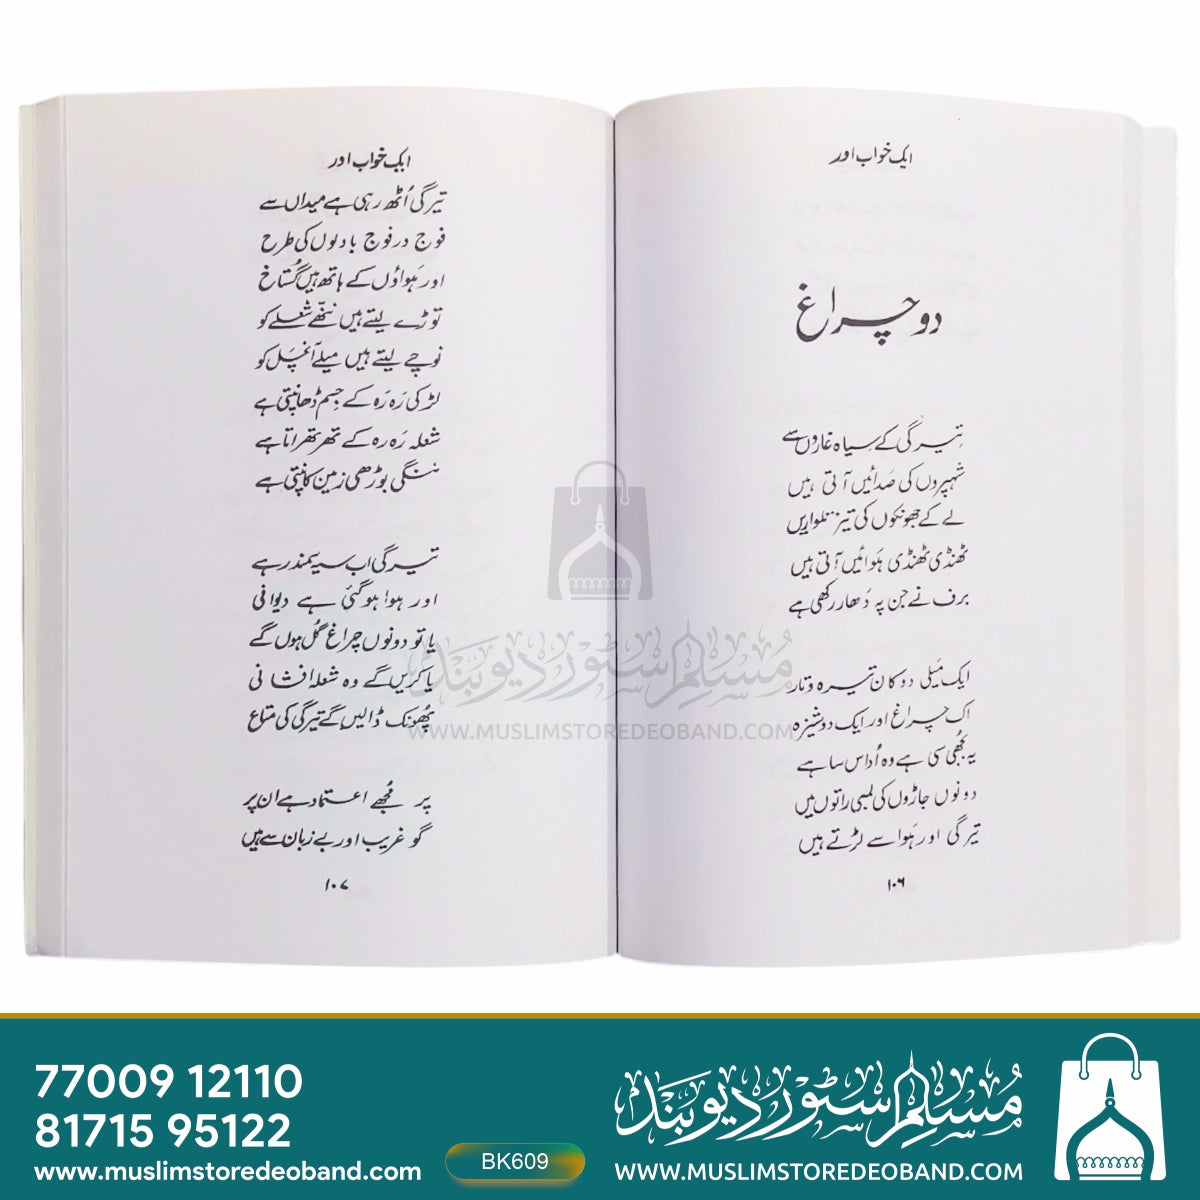 ایک خواب اور
دو چراغ
تیرگی کے سیاہ غاروں سے
شہپروں کی صدائیں آتی ہیں
لے کے جھونکوں کی تیز تلواریں
ٹھنڈی ٹھنڈی ہَوائیں آتی ہیں
برف نے جن پہ دَھار رکھی ہے
ایک مَیلی دوکان تیرہ و تار
اک چراغ اور ایک دوشیزہ
یہ بجُھی سی ہے وہ اُداس سا ہے
دونوں جاڑوں کی لمبی راتوں میں
تیرگی اور ہَوا سے لڑتے ہیں
۱۰۶
ایک خواب اور
تیرگی اُٹھ رہی ہے میداں سے
فوج در فوج بادلوں کی طرح
اور ہَواؤں کے ہاتھ ہیں گُستاخ
توڑے لیتے ہیں ننھّے شعلے کو
نوچے لیتے ہیں میلے آنچَل کو
لڑکی رَہ رَہ کے جِسم ڈھانپتی ہے
شعلہ رَہ رہ کے تھرتھراتا ہے
ننگی بوڑھی زمین کانپتی ہے
تیرگی اب سیہ سمندر ہے
اور ہوا ہو گئی ہے دیوانی
یا تو دونوں چراغ گُل ہوں گے
یا کریں گے وہ شعلہ افشانی
پُھونک ڈالیں گے تیرگی کی متاع
پر مُجھے اعتماد ہے ان پر
گو غریب اور بے زبان سے ہیں
۱۰۷
مُسلم سٹور دیوبند
WWW.MUSLIMSTOREDEOBAND.COM
77009 12110
81715 95122
www.muslimstoredeoband.com
BK609
مُسلم سٹور دیوبند
WWW.MUSLIMSTOREDEOBAND.COM